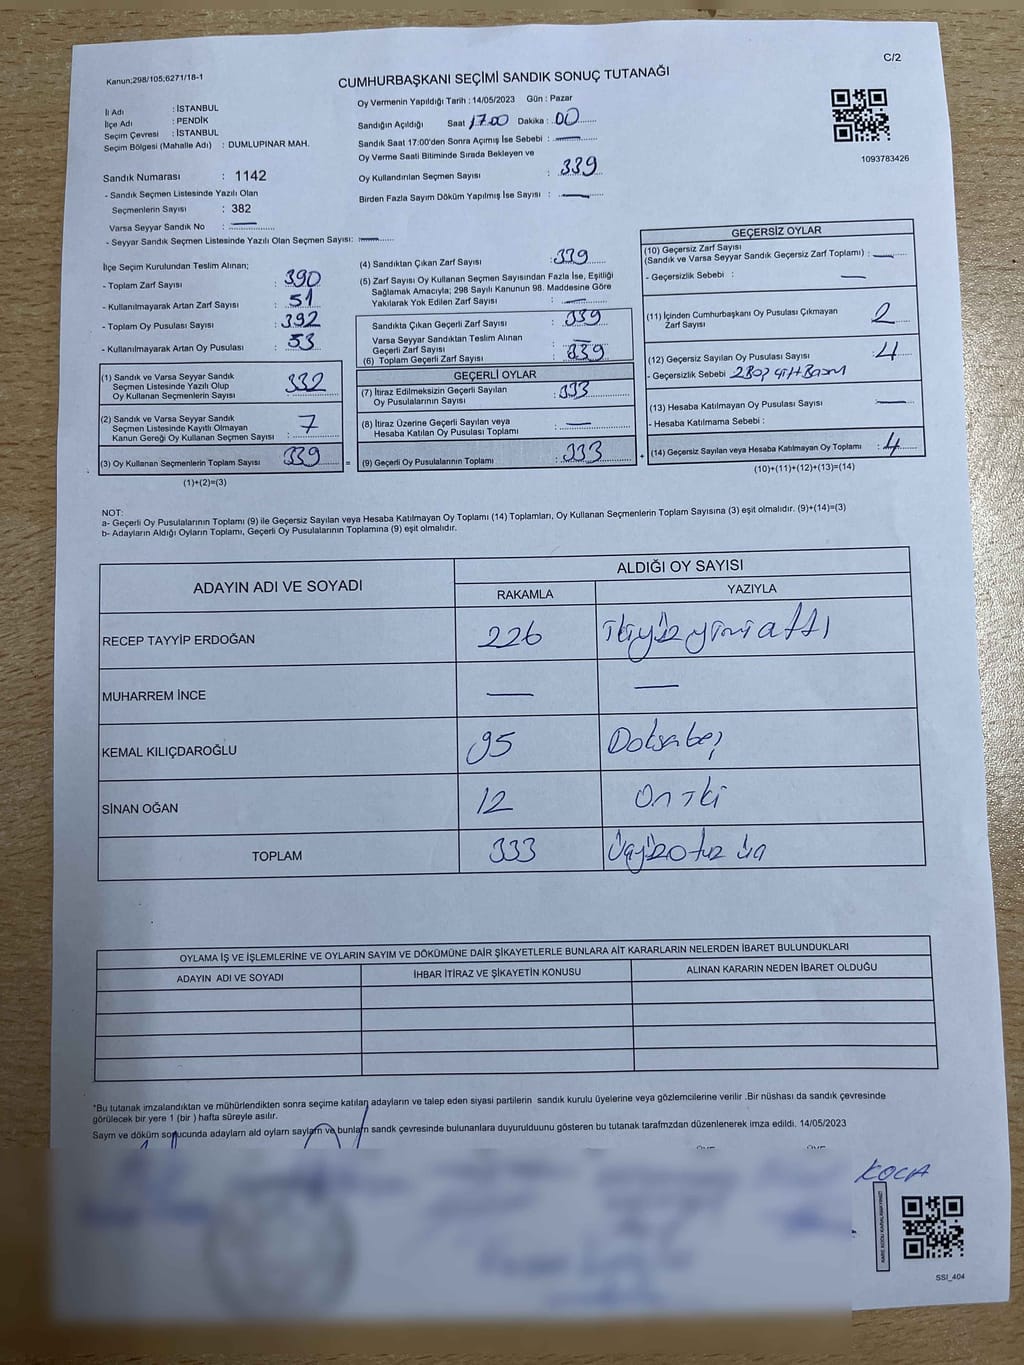 C/2
Kanun;298/105;6271/18-1
CUMHURBAŞKANI SEÇİMİ SANDIK SONUÇ TUTANAĞI
İl Adı : İSTANBUL
İlçe Adı : PENDİK
Seçim Çevresi : İSTANBUL
Seçim Bölgesi (Mahalle Adı) : DUMLUPINAR MAH.
Sandık Numarası : 1142
- Sandık Seçmen Listesinde Yazılı Olan
Seçmenlerin Sayısı : 382
Varsa Seyyar Sandık No : —
- Seyyar Sandık Seçmen Listesinde Yazılı Olan Seçmen Sayısı: —
Oy Vermenin Yapıldığı Tarih : 14/05/2023 Gün : Pazar
Sandığın Açıldığı Saat 17.00 Dakika : 00
Sandık Saat 17:00'den Sonra Açımış İse Sebebi : —
Oy Verme Saati Bitiminde Sırada Bekleyen ve
Oy Kullandırılan Seçmen Sayısı : 339
Birden Fazla Sayım Döküm Yapılmış İse Sayısı : —
1093783426
İlçe Seçim Kurulundan Teslim Alınan;
- Toplam Zarf Sayısı : 390
- Kullanılmayarak Artan Zarf Sayısı : 51
- Toplam Oy Pusulası Sayısı : 392
- Kullanılmayarak Artan Oy Pusulası : 53
(1) Sandık ve Varsa Seyyar Sandık
Seçmen Listesinde Yazılı Olup
Oy Kullanan Seçmenlerin Sayısı : 332
(2) Sandık ve Varsa Seyyar Sandık
Seçmen Listesinde Kayıtlı Olmayan
Kanun Gereği Oy Kullanan Seçmen Sayısı : 7
(3) Oy Kullanan Seçmenlerin Toplam Sayısı : 339
(1)+(2)=(3)
(4) Sandıktan Çıkan Zarf Sayısı : 339
(5) Zarf Sayısı Oy Kullanan Seçmen Sayısından Fazla İse, Eşitliği
Sağlamak Amacıyla; 298 Sayılı Kanunun 98. Maddesine Göre
Yakılarak Yok Edilen Zarf Sayısı : —
Sandıkta Çıkan Geçerli Zarf Sayısı : 339
Varsa Seyyar Sandıktan Teslim Alınan
Geçerli Zarf Sayısı : —
(6) Toplam Geçerli Zarf Sayısı : 339
GEÇERLİ OYLAR
(7) İtiraz Edilmeksizin Geçerli Sayılan
Oy Pusulalarının Sayısı : 333
(8) İtiraz Üzerine Geçerli Sayılan veya
Hesaba Katılan Oy Pusulası Toplamı : —
= (9) Geçerli Oy Pusulalarının Toplamı : 333
GEÇERSİZ OYLAR
(10) Geçersiz Zarf Sayısı
(Sandık ve Varsa Seyyar Sandık Geçersiz Zarf Toplamı) : —
- Geçersizlik Sebebi : —
(11) İçinden Cumhurbaşkanı Oy Pusulası Çıkmayan
Zarf Sayısı : 2
(12) Geçersiz Sayılan Oy Pusulası Sayısı : 4
- Geçersizlik Sebebi
(13) Hesaba Katılmayan Oy Pusulası Sayısı : —
- Hesaba Katılmama Sebebi :
+ (14) Geçersiz Sayılan veya Hesaba Katılmayan Oy Toplamı : 4
(10)+(11)+(12)+(13)=(14)
NOT:
a- Geçerli Oy Pusulalarının Toplamı (9) ile Geçersiz Sayılan veya Hesaba Katılmayan Oy Toplamı (14) Toplamları, Oy Kullanan Seçmenlerin Toplam Sayısına (3) eşit olmalıdır. (9)+(14)=(3)
b- Adayların Aldığı Oyların Toplamı, Geçerli Oy Pusulalarının Toplamına (9) eşit olmalıdır.
ADAYIN ADI VE SOYADI ALDIĞI OY SAYISI
RAKAMLA YAZIYLA
RECEP TAYYİP ERDOĞAN 226 ikiyüzyirmialtı
MUHARREM İNCE — —
KEMAL KILIÇDAROĞLU 95 Doksabeş
SİNAN OĞAN 12 on iki
TOPLAM 333 Üçyüzotuz üç
OYLAMA İŞ VE İŞLEMLERİNE VE OYLARIN SAYIM VE DÖKÜMÜNE DAİR ŞİKAYETLERLE BUNLARA AİT KARARLARIN NELERDEN İBARET BULUNDUKLARI
ADAYIN ADI VE SOYADI İHBAR İTİRAZ VE ŞİKAYETİN KONUSU ALINAN KARARIN NEDEN İBARET OLDUĞU
*Bu tutanak imzalandıktan ve mühürlendikten sonra seçime katılan adayların ve talep eden siyasi partilerin sandık kurulu üyelerine veya gözlemcilerine verilir .Bir nüshası da sandık çevresinde
görülecek bir yere 1 (bir ) hafta süreyle asılır.
Sayım ve döküm sonucunda adayların ald oyların sayıların ve bunların sandk çevresinde bulunanlara duyurulduunu gösteren bu tutanak tarafmzdan düzenlenerek imza edildi. 14/05/2023
KOCA
SSI_404